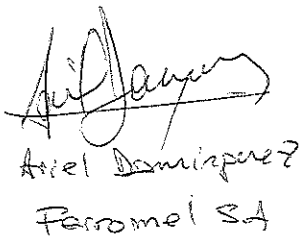 Ariel Dominguez
Ferromel SA